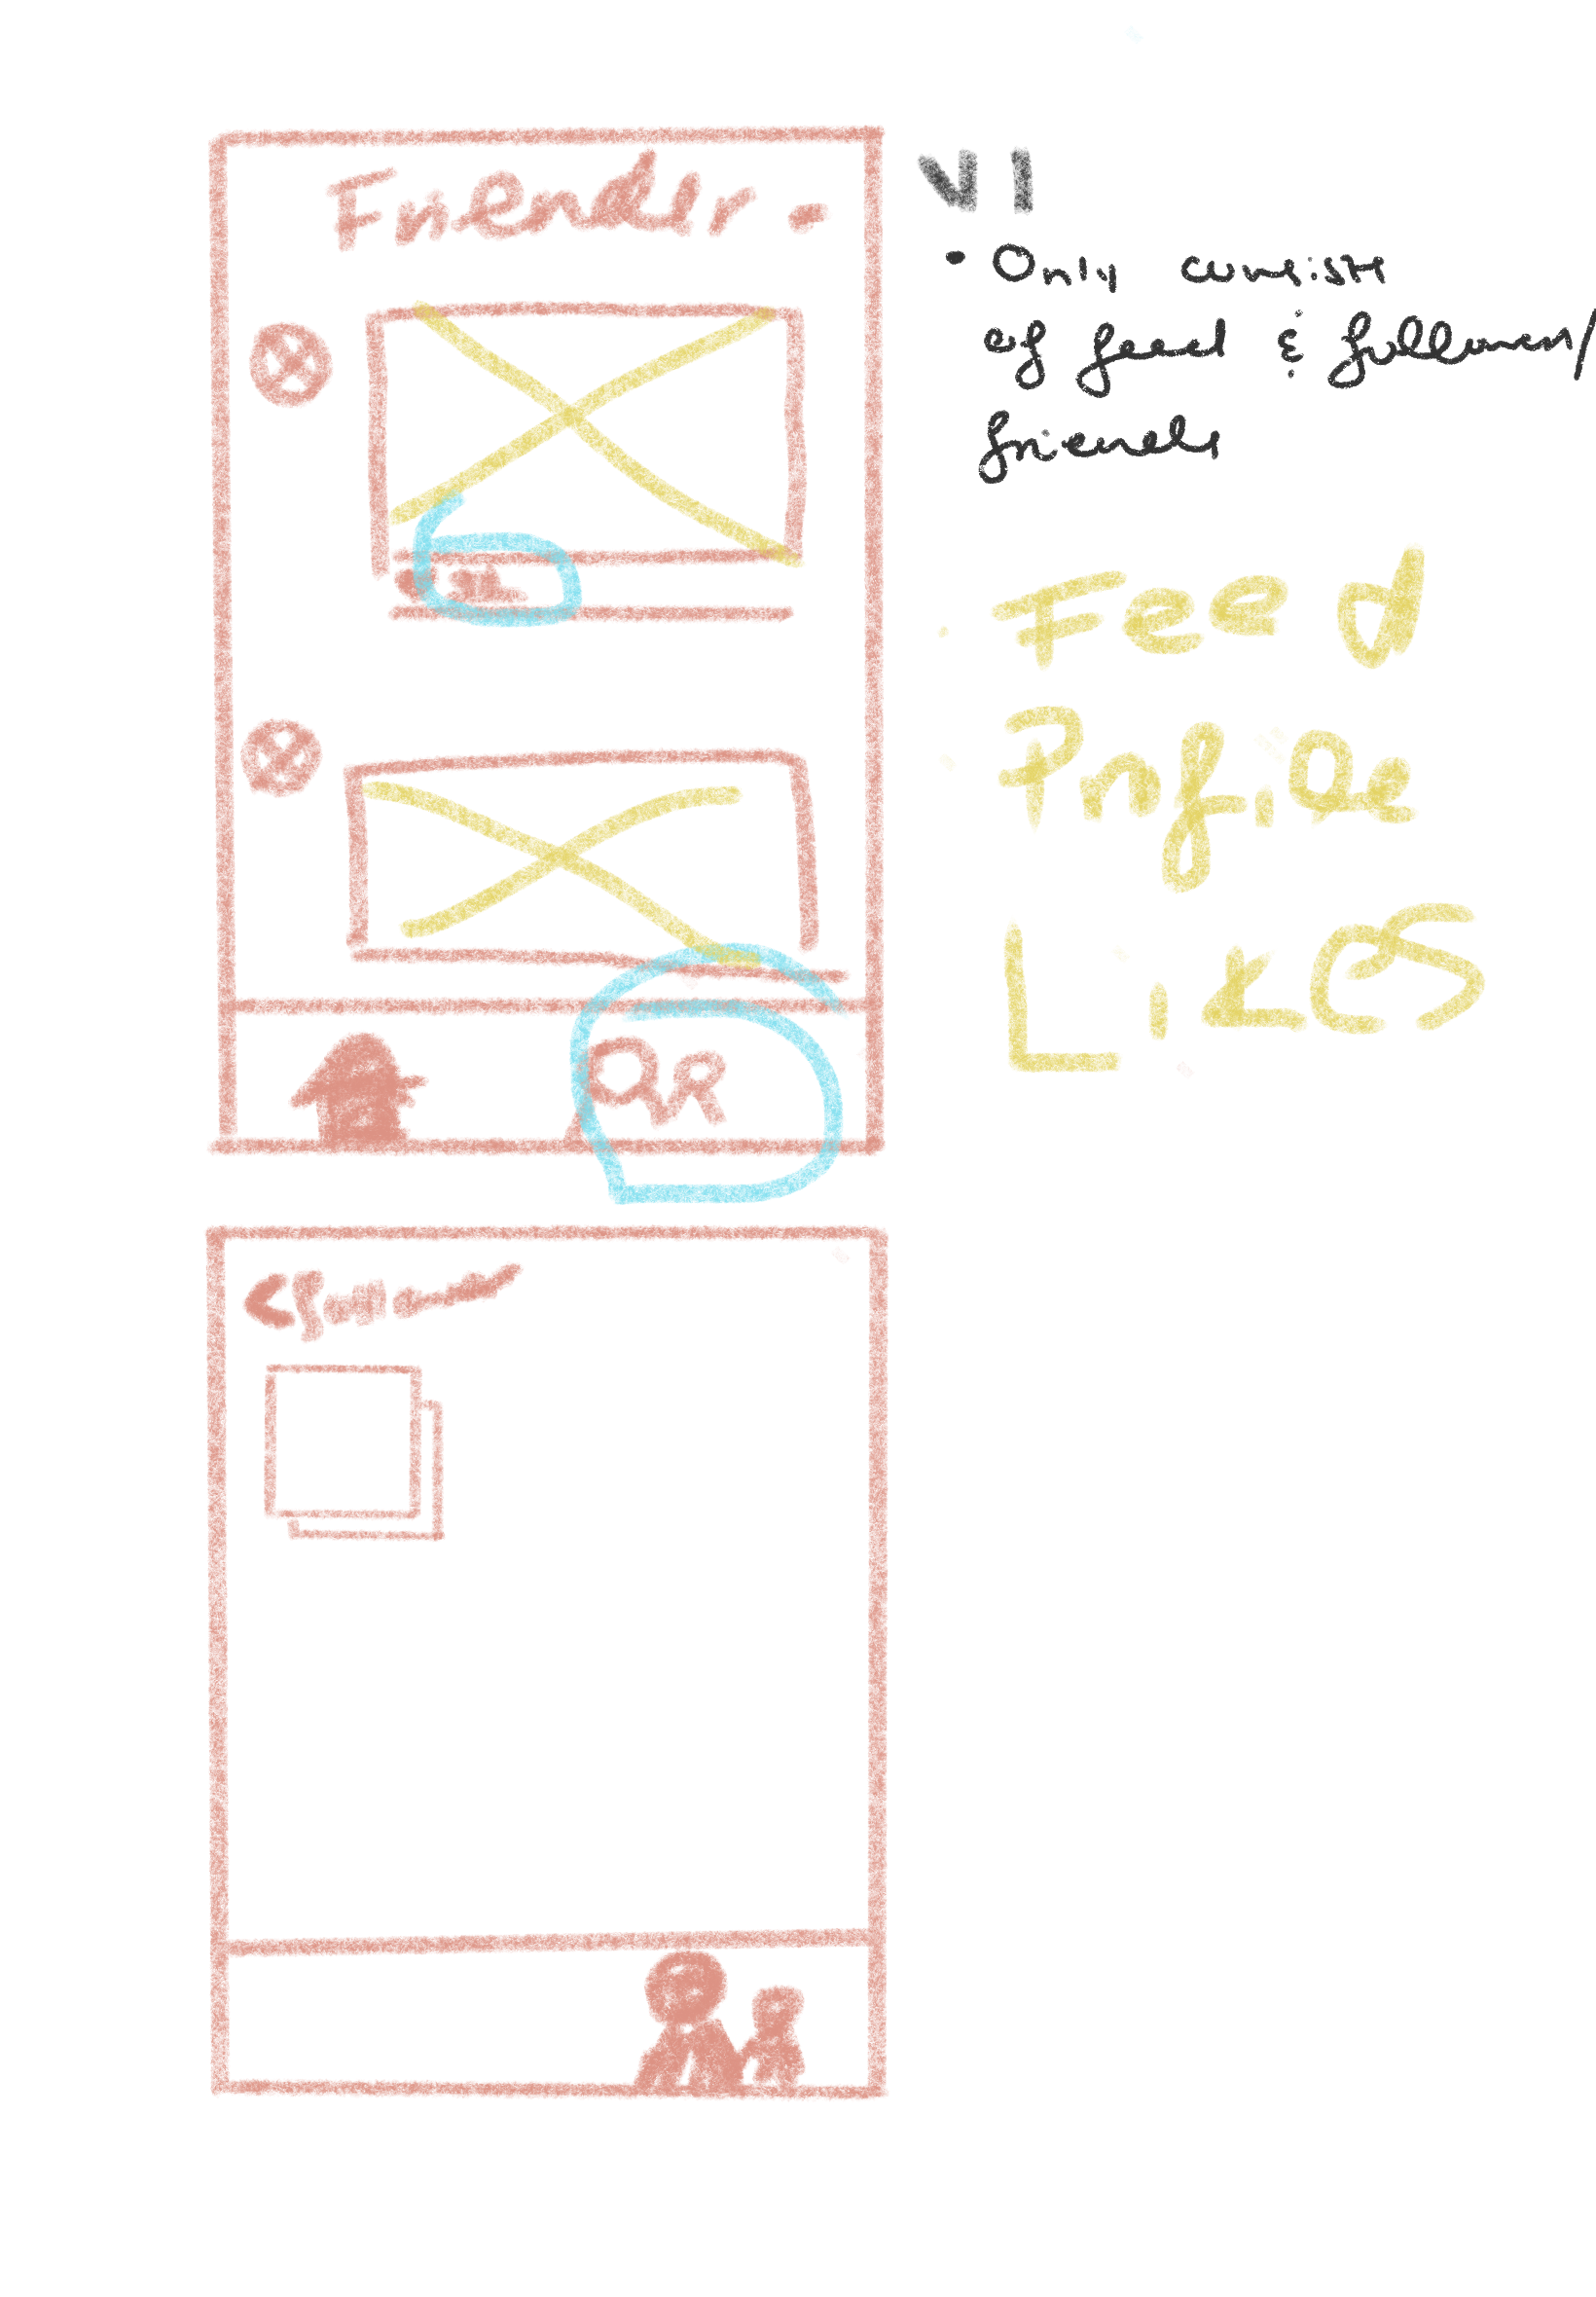 Friender.
V1
• Only consists
of feed & followers/
friends
Feed
Profile
Likes
QR